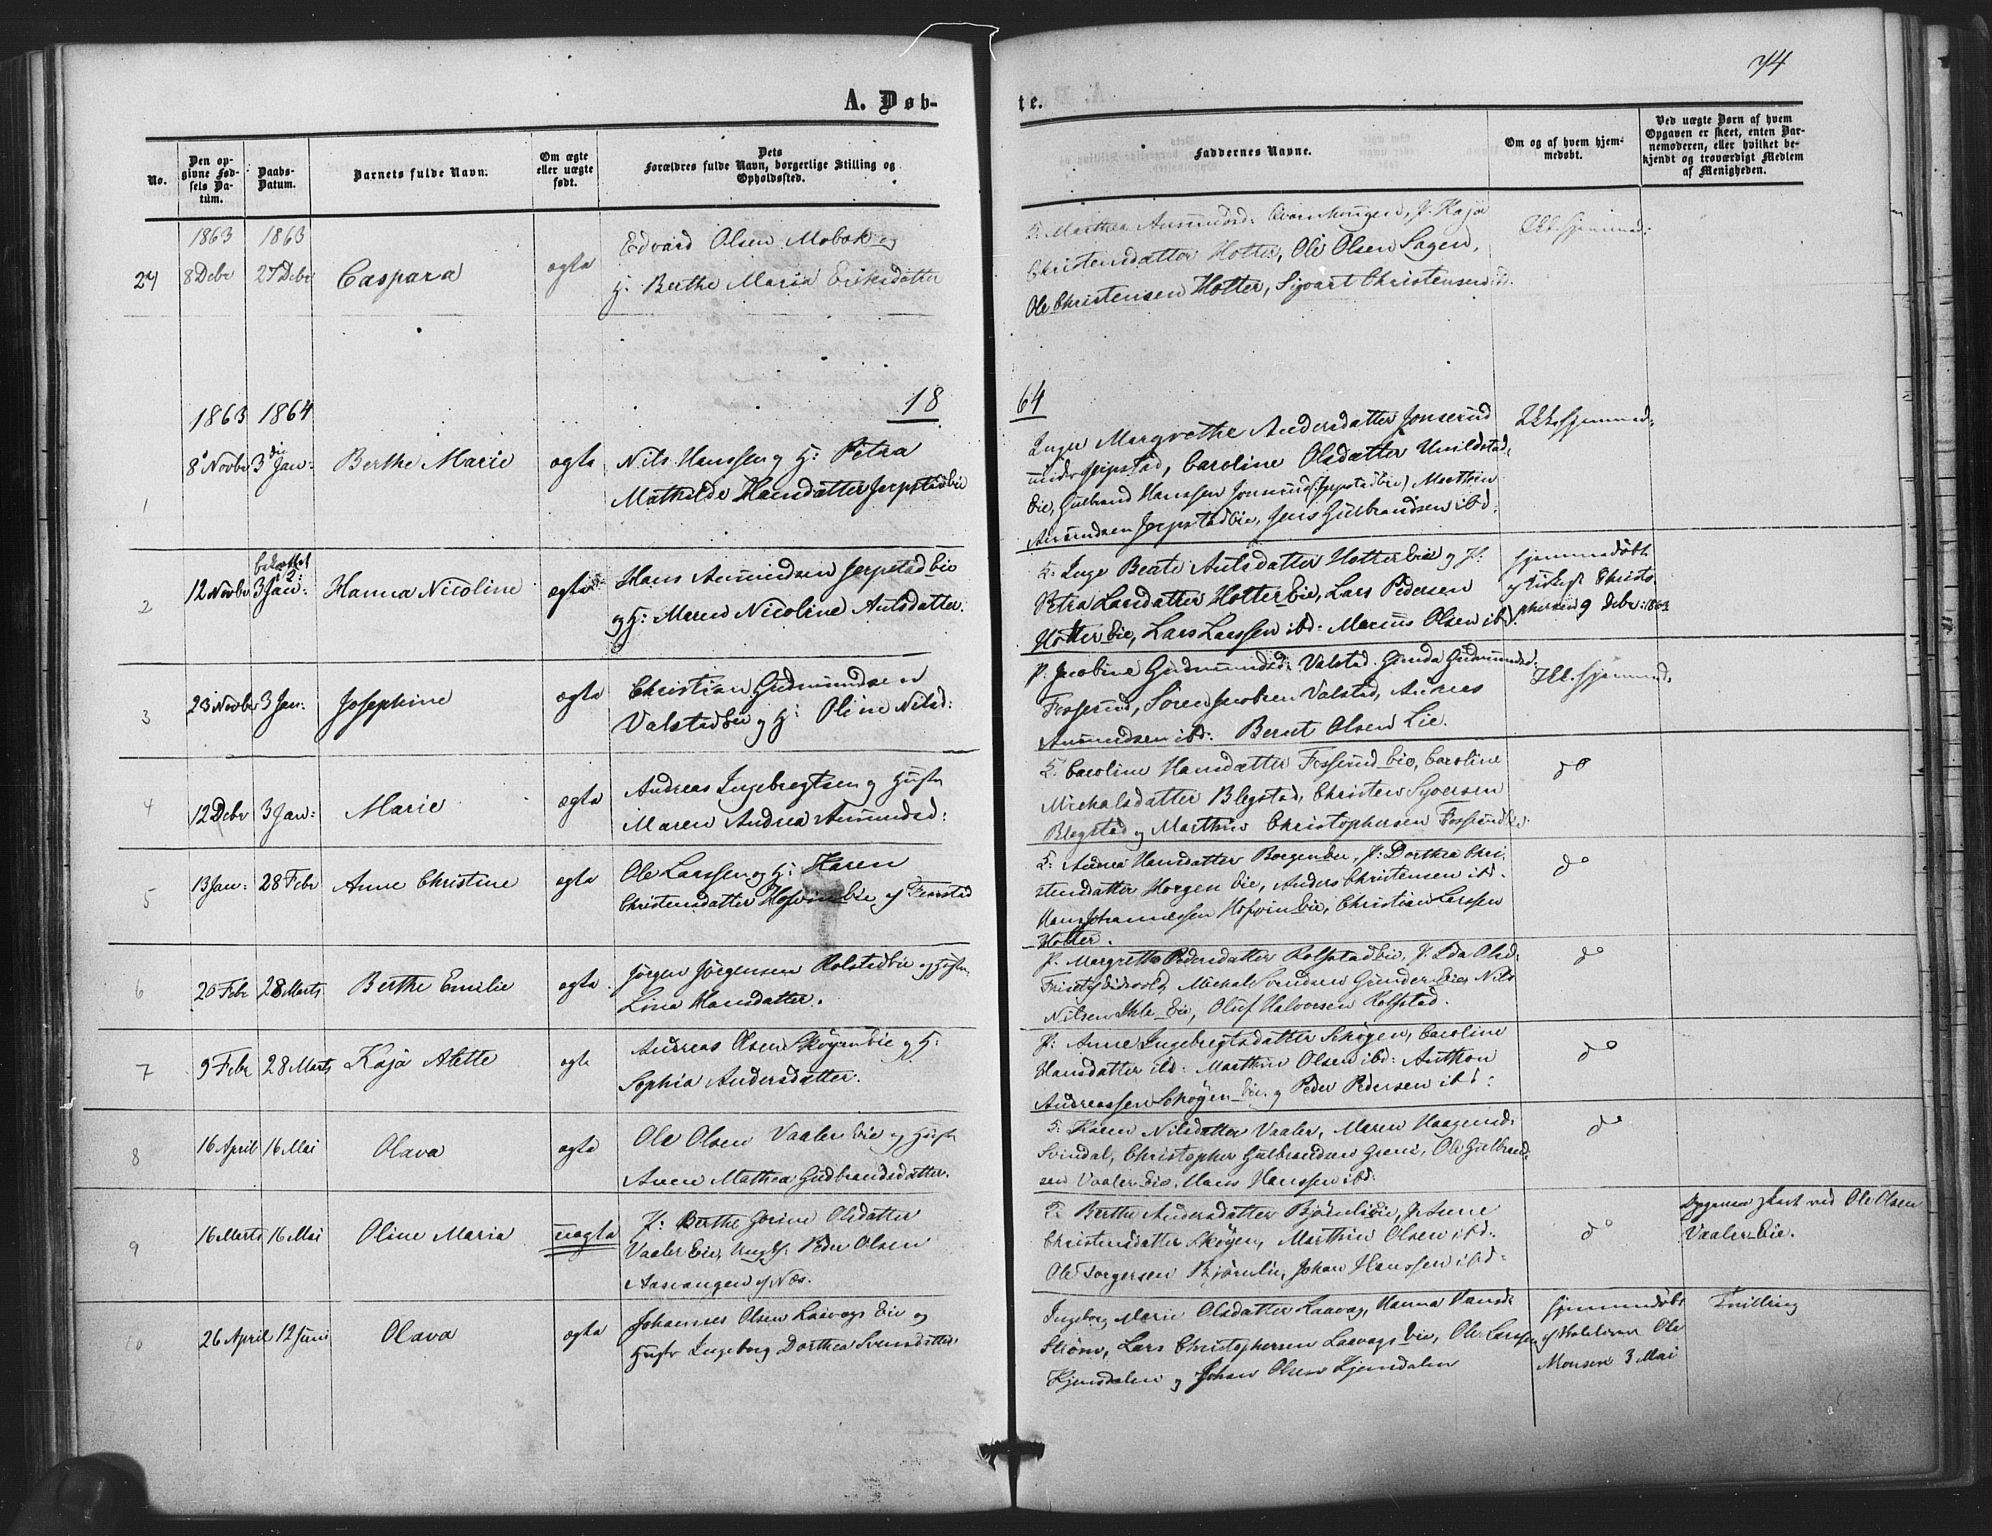 74
A. Døb-
te.
No.
Den op-
givne Fød-
sels Da-
tum.
Daabs-
Datum.
Barnets fulde Navn.
Om ægte
eller uægte
født.
Dets
Forældres fulde Navn, borgerlige Stilling og
Opholdssted.
Faddernes Navne.
Om og af hvem hjem-
medøbt.
Ved uægte Børn af hvem
Opgaven er skeet, enten Bar-
nemoderen, eller hvilket be-
kjendt og troværdigt Medlem
af Menigheden.
1863 1863
24 8 Debr 27 Debr Caspara ægte
Edvard Olsen Mobak og
H. Berthe Maria Eriksdatter
Marthea Amundsd: J. Kaja
Christensdatter Hotter, Ole Olsen Sagen,
Ole Christensen Hotter, Sigvart Christensen ibd.
1863 1864
18
64
1 8 Novbr 3die Jan: Berthe Marie ægte
Nils Hanssen og H: Petra
Mathilde Hansdatter Jerpstadeie
Inger Margrethe Andersdatter Jonserud
under Jerpstad, Caroline Olsdatter
Eie, Gulbrand Hanssen Jonserud (Jerpstadeie) Marthin
Amundsen Jerpstadeie, Jens Gulbrandsen ibd.
Ikke hjemmed:
2 12 Novbr 3 Jan: Hanna Nicoline ægte
Hans Amundsen Jerpstad eie
og H: Maren Nicoline Antsdatter.
Inge Beate Antsdatter Hotter eie og P:
Petra Larsdatter Hotter Eie, Lars Pedersen
Hotter Eie, Lars Larssen ibd: Marius Olsen ibd.
hjemmedøbt
Christo
phersen 9 Debr: 1863
3 23 Novbr 3 Jan: Josephine ægte
Christian Gudmundsen
Valstadeie og H: Oline Nilsd:
P. Jacobine Gudmundsd: Valstad. Gunda Gudmundsd.
Fosserud, Søren Jacobsen Valstad, Andreas
Amundsen ibd: Bernt Olsen Lie.
Ikke hjemmed.
4 12 Debr 3 Jan: Marie ægte
Andreas Ingebregtsen og Hustr
Maren Andrea Amundsd:
Caroline Hansdatter Fosserud eie, Caroline
Michalsdatter Blegstad, Christen Syversen
Blegstad og Marthin Christophersen Fosserud
do
5 13 Jan: 28 Febr Anne Christine ægte
Ole Larssen og H: Karen
Christensdatter Hofvin Eie af Fenstad
Andrea Hansdatter Borgen Eie, P: Dorthea Chri-
stensdatter Horgen Eie, Anders Christensen ibd.
Hans Johannessen Hofvin Eie, Christian Larssen
Hotter.
do
6 20 Febr 28 Marts Berthe Emilie ægte
Jørgen Jørgensen Rolstad Eie og Hustr.
Lina Hansdatter.
P. Margrethe Pedersdatter Rolstad Eie, P. Ida Olsd:
Michal Svendsen Gunder Eie, Nils
Nilsen Ihle Eie, Oluf Halvorsen Rolstad.
do
7 9 Febr 28 Marts Kaja Alette ægte
Andreas Olsen Skøyen Eie og H:
Sophia Andersdatter.
P: Anne Ingebregtsdatter Skøyen, Caroline
Hansdatter ibd: Marthin Olsen ibd: Anthon
Andreassen Skøyen Eie og Peder Pedersen ibd:
do
8 16 April 16 Mai Olava ægte
Ole Olsen Vaaler Eie og Hustr
Anen Mathea Gudbrandsdatter.
Karen Nilsdatter Vaaler, Maren Haagensd:
Svindal, Christopher Gulbrandsen Greni, Ole Gulbrand-
sen Vaaler Eie, Hans Hanssen ibd:
do
9 16 Marts 16 Mai Oline Maria uægte
P: Berthe Gorine Olsdatter
Vaaler Eie, Ungk. Peder Olsen
Aasvangen af Næs.
Berthe Andersdatter Bjørnlieie, P. Anne
Christensdatter Skøyen, Marthin Olsen ibd:
Ole Torgersen Bjørnlie, Johan Hanssen ibd:
do
skeet ved Ole Olsen
Vaaler Eie.
10 26 April 12 Juni Olava ægte
Johannes Olsen Laavags Eie og
Hustr Ingeborg Dorthea Svensdatter
Ingeborg Marie Olsdatter Laavag, Hanna Hansd:
Strøm, Lars Christophersen Laavags Eie, Ole Larssen
Kjensdalen og Johan Olsen Kjensdalen
hjemmedøbt
af Ole
Monsen 3 Mai
Tvilling